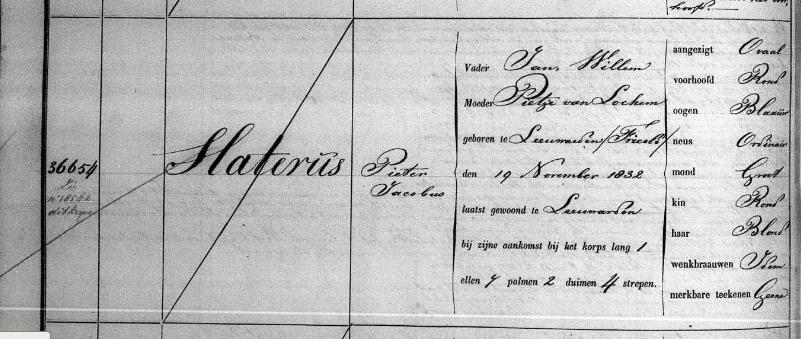 hoofd.
36654
Zie
Slaterus
Pieter
Jacobus
Vader Jan, Willem
Moeder Pietje van Lochem
geboren te Leeuwarden (Friesl)
den 19 November 1832
laatst gewoond te Leeuwarden
bij zijne aankomst bij het korps lang 1
ellen 7 palmen 2 duimen 4 strepen.
aangezigt Ovaal
voorhoofd Rond
oogen Blaauw
neus Ordinair
mond Groot
kin Rond
haar Blond
wenkbraauwen Idem
merkbare teekenen Geene